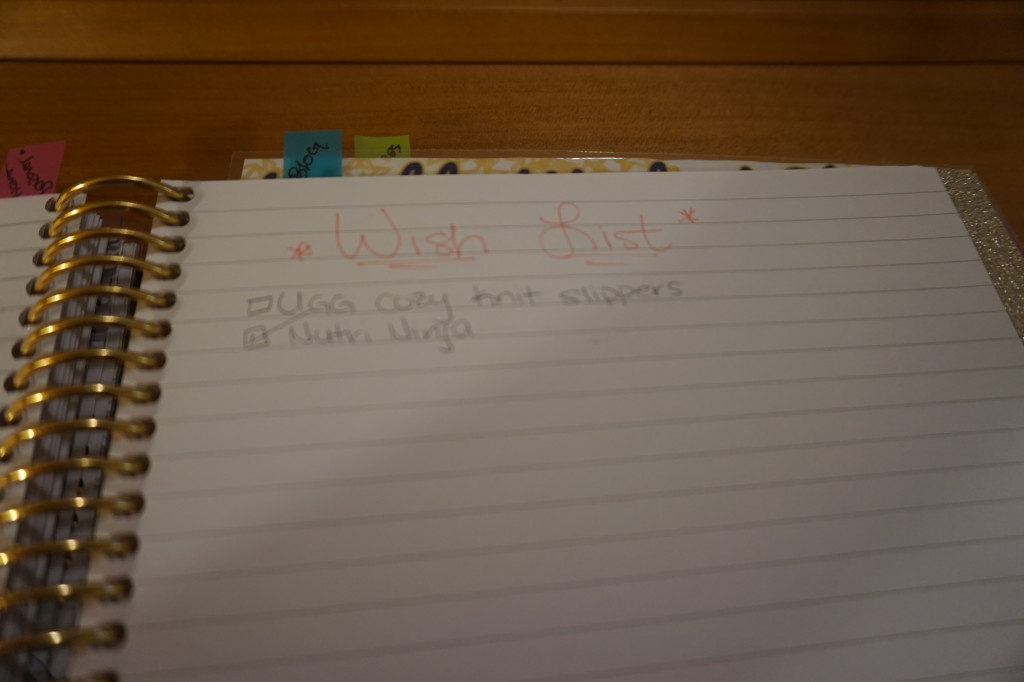 Blog
* Wish List *
UGG cozy knit slippers
Nutri Ninja